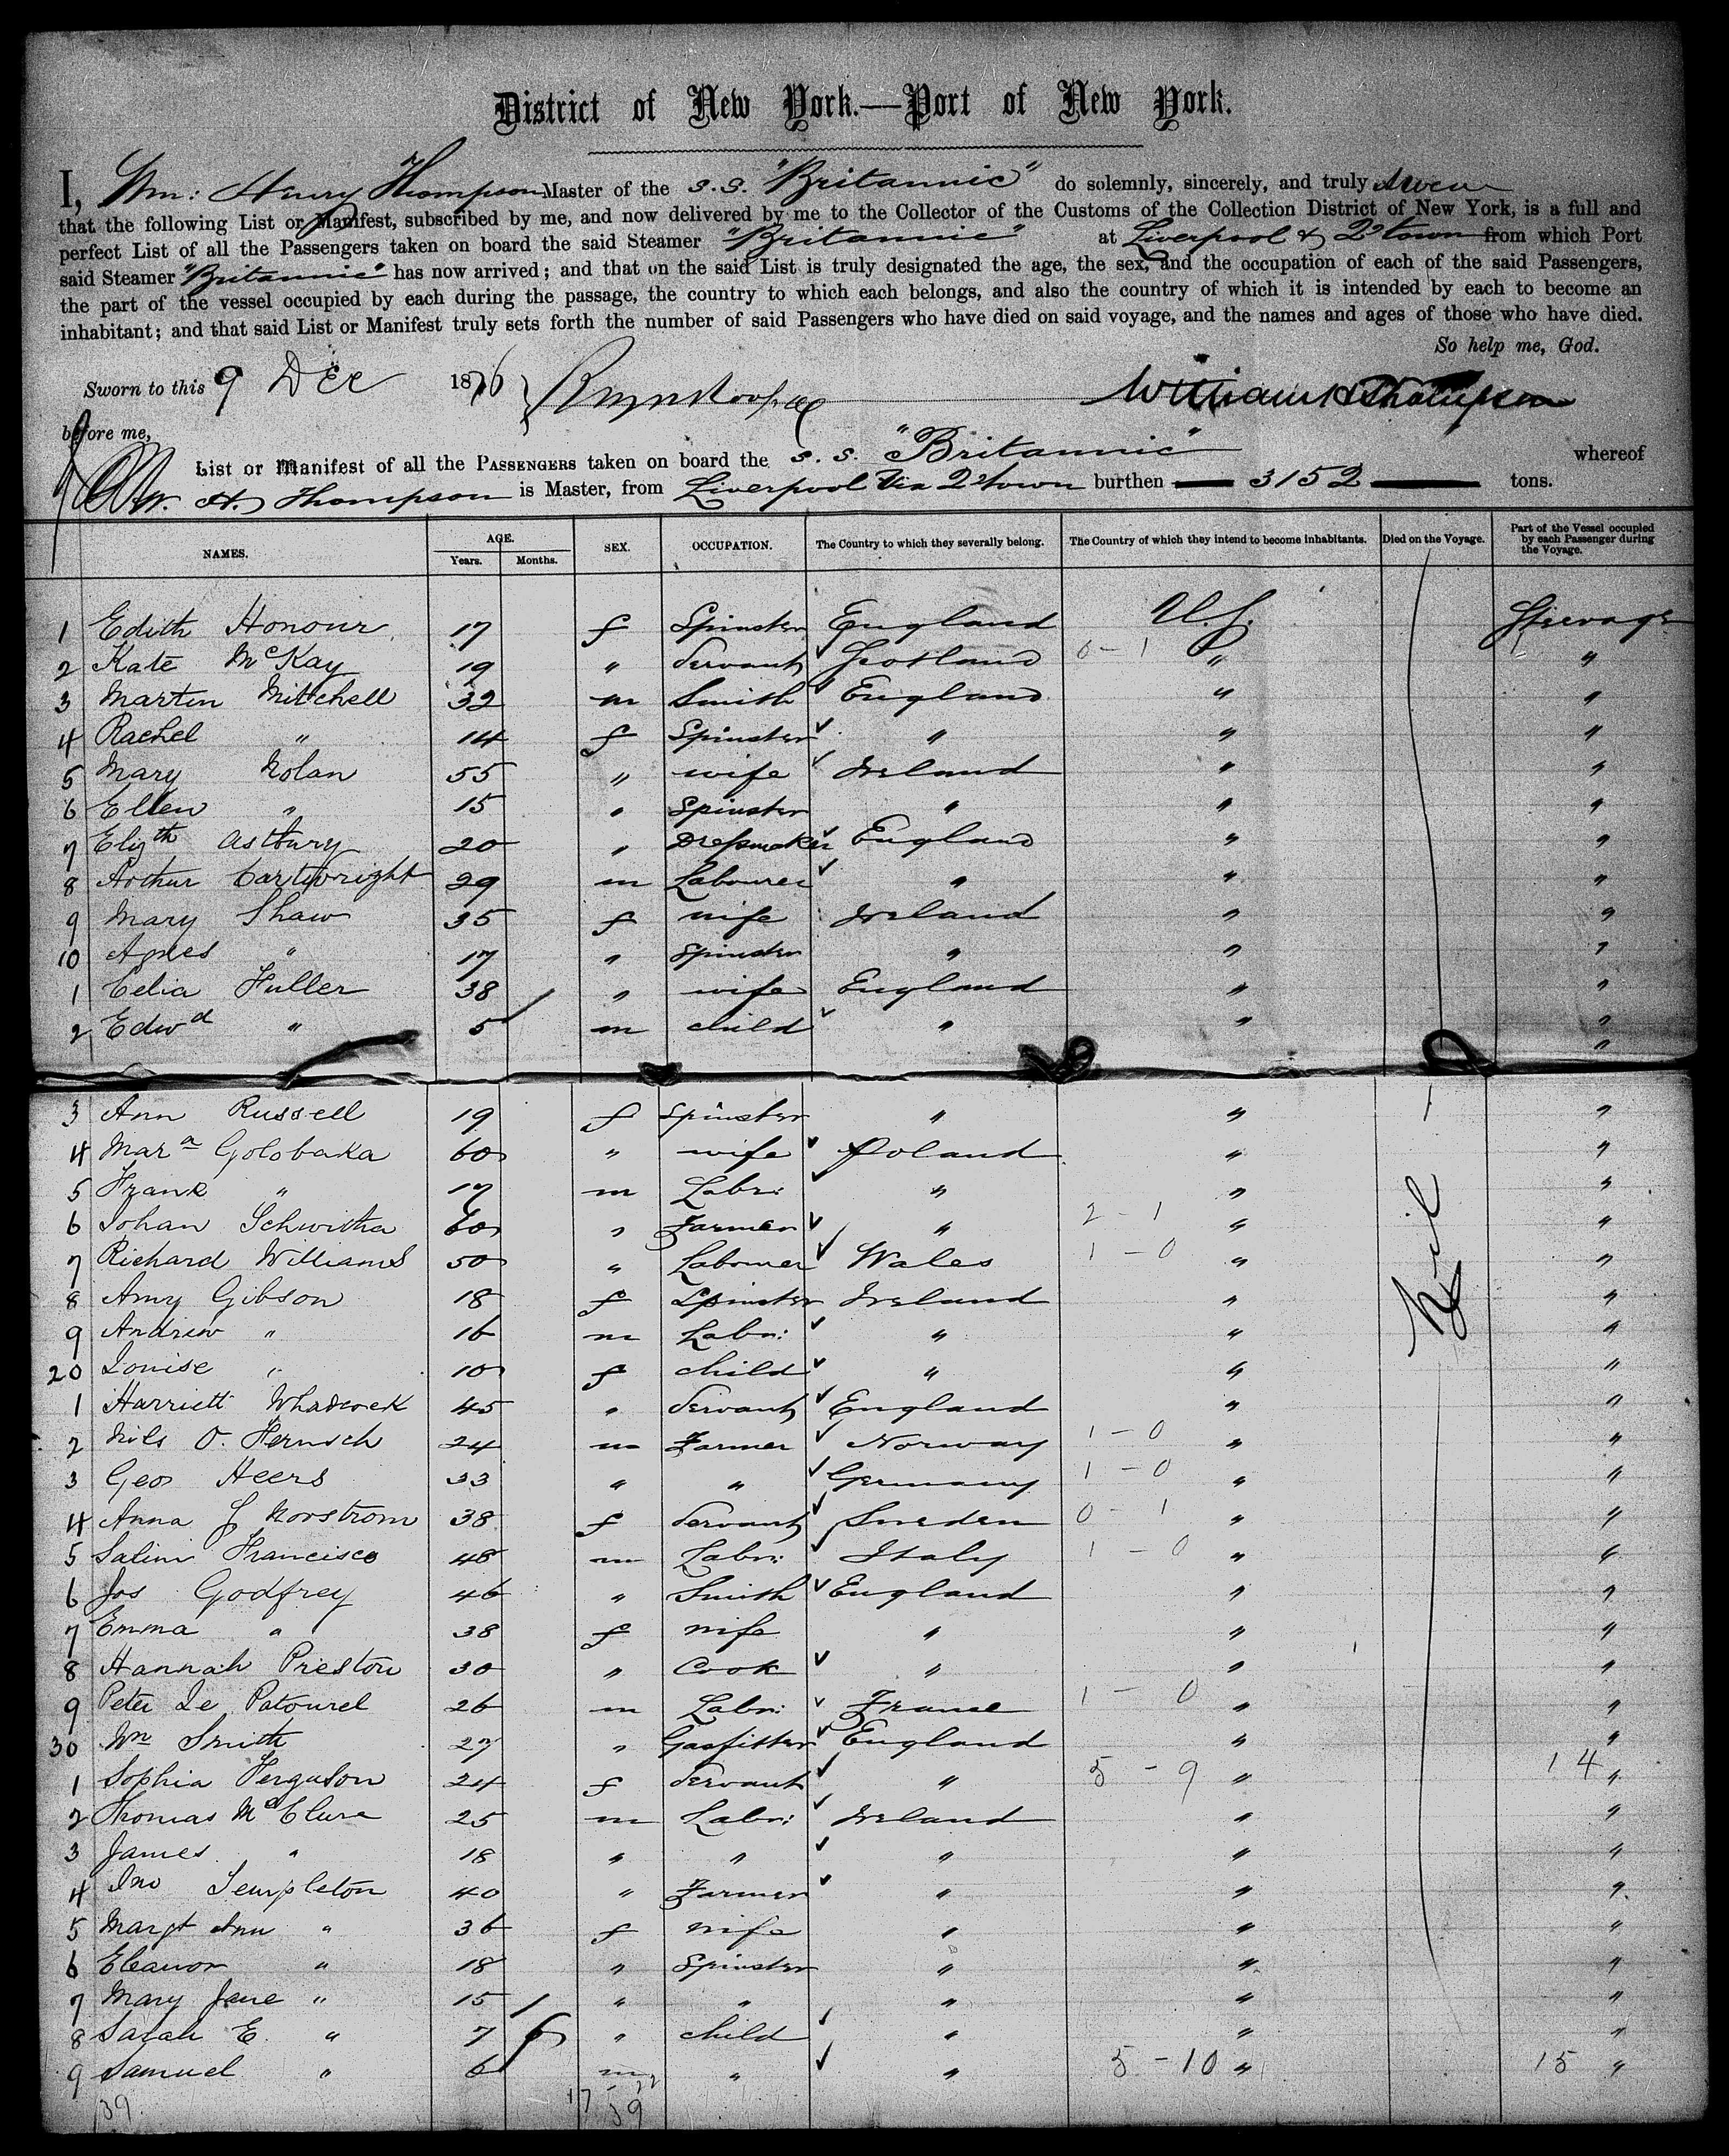 District of New York.—Port of New York.
I, Wm: Henry Thompson Master of the s.s. "Britannic" do solemnly, sincerely, and truly swear
that the following List or Manifest, subscribed by me, and now delivered by me to the Collector of the Customs of the Collection District of New York, is a full and
perfect List of all the Passengers taken on board the said Steamer "Britannic" at Liverpool & Q'town from which Port
said Steamer "Britannic" has now arrived; and that on the said List is truly designated the age, the sex, and the occupation of each of the said Passengers,
the part of the vessel occupied by each during the passage, the country to which each belongs, and also the country of which it is intended by each to become an
inhabitant; and that said List or Manifest truly sets forth the number of said Passengers who have died on said voyage, and the names and ages of those who have died.
So help me, God.
Sworn to this 9 Dec 1876 William H Thompson
before me,
List or Manifest of all the PASSENGERS taken on board the s.s. "Britannic" whereof
W. H. Thompson is Master, from Liverpool Via Q'town burthen — 3152 — tons.
NAMES. AGE. SEX. OCCUPATION. The Country to which they severally belong. The Country of which they intend to become inhabitants. Died on the Voyage. Part of the Vessel occupied by each Passenger during the Voyage.
Years. Months.
1 Edith Honour 17 f Spinster England U.S. Steerage
2 Kate McKay 19 " Servant Scotland 0 - 1 " "
3 Martin Mitchell 32 m Smith England " "
4 Rachel " 14 f Spinster " " "
5 Mary Nolan 55 " wife Ireland " "
6 Ellen " 15 " Spinster " " "
7 Elizth Astbury 20 " Dressmaker England " "
8 Arthur Cartwright 29 m Labourer " " "
9 Mary Shaw 35 f wife Ireland " "
10 Agnes " 17 " Spinster " " "
1 Celia Fuller 38 " wife England " "
2 Edwd " 5 m child " " "
"
3 Ann Russell 19 f Spinster " " "
4 Mara Golobaka 60 " wife Poland " "
5 Frank " 17 m Labr: " " "
6 Johan Schwitha 60 " Farmer " 2 - 1 " "
7 Richard Williams 50 " Labourer Wales 1 - 0 " "
8 Amy Gibson 18 f Spinster Ireland " "
9 Andrew " 16 m Labr: " " "
20 Louise " 10 f child " " "
1 Harriett Whadcock 45 " Servant England " "
2 Nils O. Fernsch 24 m Farmer Norway 1 - 0 " "
3 Geo Heers 33 " " Germany 1 - 0 " "
4 Anna J Norstrom 38 f Servant Sweden 0 - 1 " "
5 Salini Francisco 48 m Labr: Italy 1 - 0 " "
6 Jos Godfrey 46 " Smith England " "
7 Emma " 38 f wife " " "
8 Hannah Preston 30 " Cook " " "
9 Peter Le Patourel 26 m Labr: France 1 - 0 " "
30 Wm Smith 27 " Gasfitter England " "
1 Sophia Ferguson 24 f Servant " 5 - 9 " 14 "
2 Thomas McClure 25 m Labr: Ireland " "
3 James " 18 " " " " "
4 Jno Templeton 40 " Farmer " " "
5 Margt Ann " 36 f wife " " "
6 Eleanor " 18 " Spinster " " "
7 Mary Jane " 15 " " " " "
8 Sarah E. " 7 " child " " "
9 Samuel " 6 m " " 5 - 10 " 15 "
39